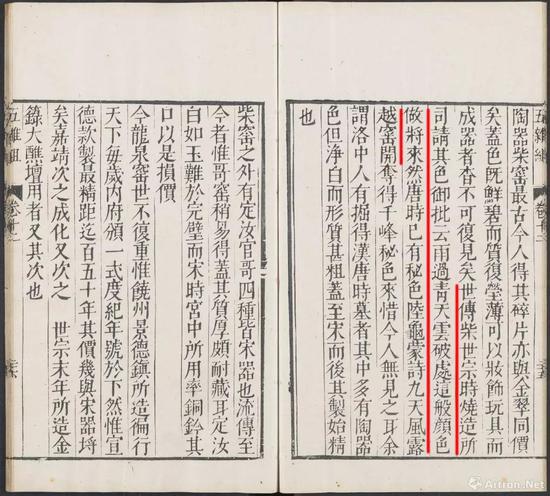 五雜組
陶器柴窰最古今人得其碎片亦與金翠同價
矣蓋色既鮮碧而質復瑩薄可以妝飾玩具而
成器者杳不可復見矣世傳柴世宗時燒造所
司請其色御批云雨過青天雲破處這般顏色
做將來然唐時已有秘色陸龜蒙詩九天風露
越窰開奪得千峰秘色來惜今人無見之耳余
謂洛中人有掘得漢唐時墓者其中多有陶器
色但淨白而形質甚粗蓋至宋而後其製始精
也
柴窰之外有定汝官哥四種皆宋器也流傳至
今者惟哥窰稍易得蓋其質厚頗耐藏耳定汝
白如玉難於完璧而宋時宮中所用率銅鈐其
口以是損價
今龍泉窰世不復重惟饒州景德鎮所造徧行
天下每歲內府頒一式度紀年號於下然惟宣
德款製最精距迄百五十年其價幾與宋器埒
矣嘉靖次之成化又次之 世宗末年所造金
籙大醮壇用者又其次也
五雜組 卷十二
Artron.Net